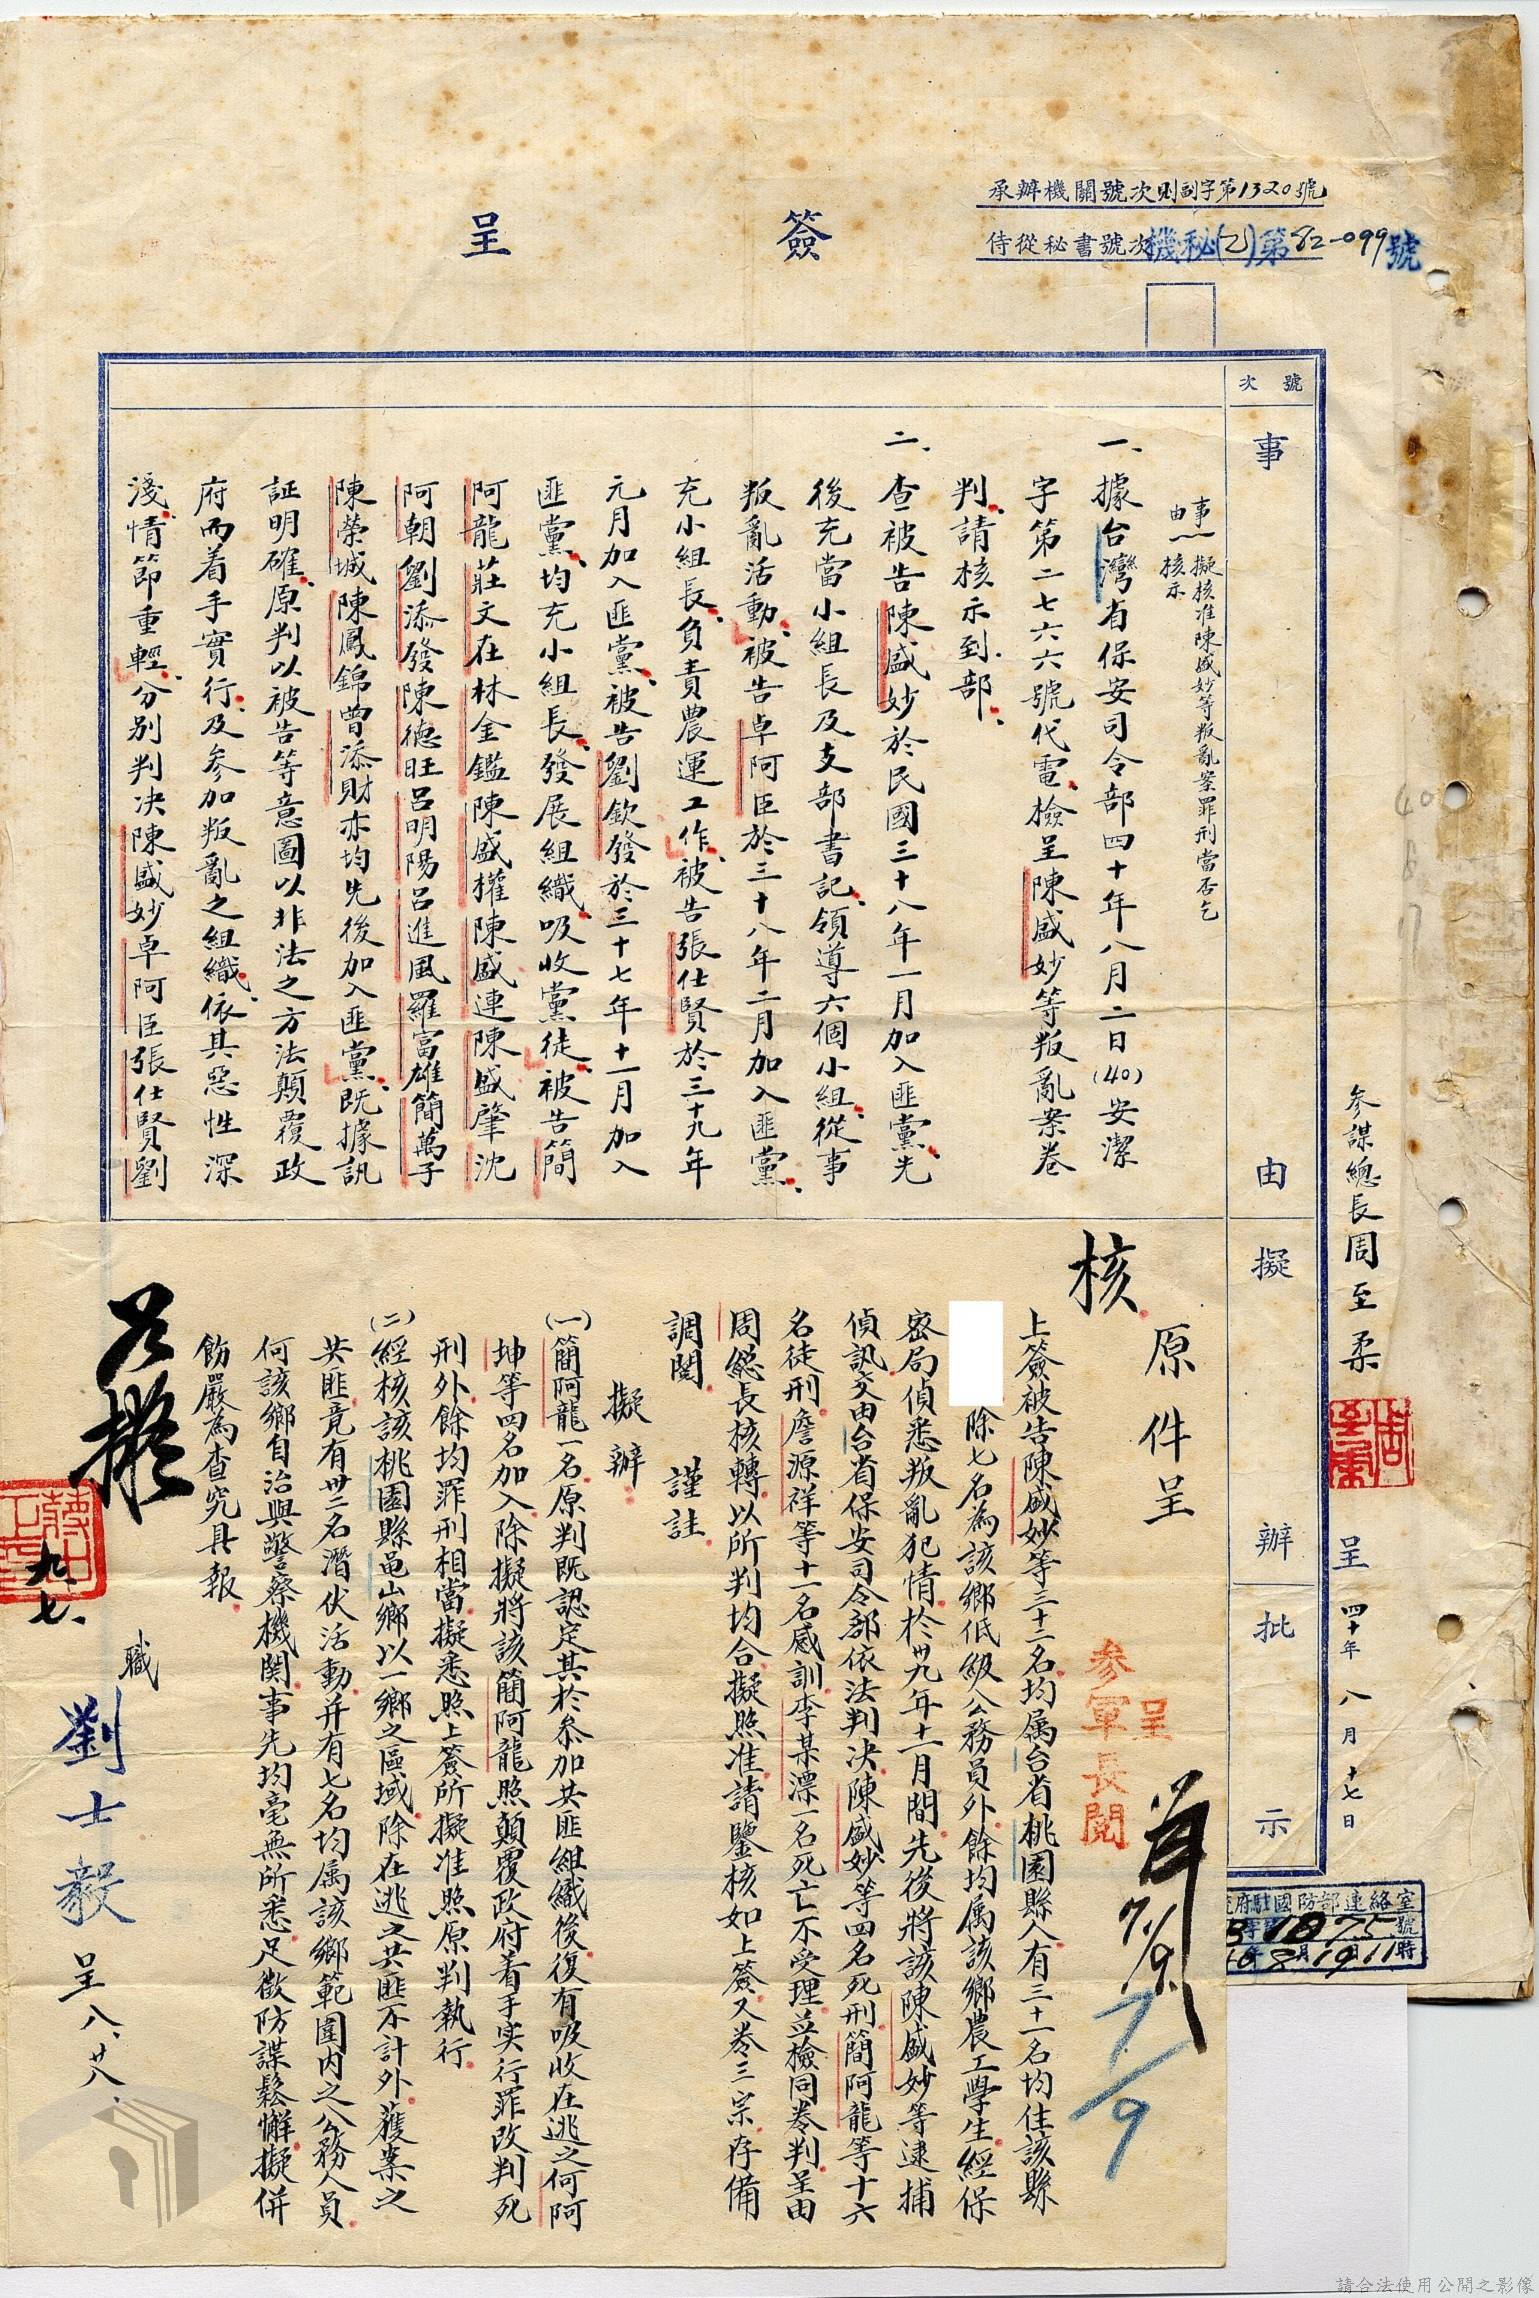 承辦機關號次則副字第1320號
侍從秘書號次機秘(乙)第82-099號
簽呈
號次
事由
擬辦
批示
參謀總長周至柔
呈四十年八月十七日
事由
擬核准陳盛妙等叛亂案罪刑當否乞
核示
一、據台灣省保安司令部四十年八月二日(40)安潔
字第二七六六號代電檢呈陳盛妙等叛亂案卷
判請核示到部
二、查被告陳盛妙於民國三十八年一月加入匪黨先
後充當小組長及支部書記領導六個小組從事
叛亂活動被告卓阿臣於三十八年二月加入匪黨
充小組長負責農運工作被告張仕賢於三十九年
元月加入匪黨被告劉欽發於三十七年十一月加入
匪黨均充小組長發展組織吸收黨徒被告簡
阿龍莊文在林金鑑陳盛權陳盛連陳盛肇沈
阿朝劉添發陳德旺呂明陽呂進風羅富雄簡萬子
陳榮城陳鳳錦曾添財亦均先後加入匪黨既據訊
証明確原判以被告等意圖以非法之方法顛覆政
府而着手實行及參加叛亂之組織依其惡性深
淺情節重輕分別判決陳盛妙卓阿臣張仕賢劉
原件呈
核
呈
參軍長閱
7/9
7/9
上簽被告陳盛妙等三十二名均屬台省桃園縣人有三十一名均住該縣
除七名為該鄉低級公務員外餘均屬該鄉農工學生經保
密局偵悉叛亂犯情於卅九年十二月間先後將該陳盛妙等逮捕
偵訊交由台省保安司令部依法判決陳盛妙等四名死刑簡阿龍等十六
名徒刑詹源祥等十一名感訓李某漂一名死亡不受理並檢同卷判呈由
周總長核轉以所判均合擬照准請鑒核如上簽又卷三宗存備
調閱 謹註
擬辦
(一)簡阿龍一名原判既認定其於參加共匪組織後復有吸收在逃之何阿
坤等四名加入除擬將該簡阿龍照顛覆政府着手实行罪改判死
刑外餘均罪刑相當擬悉照上簽所擬准照原判執行
(二)經核該桃園縣龜山鄉以一鄉之區域除在逃之共匪不計外獲案之
共匪竟有卅二名潛伏活動并有七名均屬該鄉範圍內之公務人員
何該鄉自治與警察機関事先均毫無所悉足徵防諜鬆懈擬併
飭嚴為查究具報
職劉士毅呈八、廿八、
如擬
九、七、
府駐國防部連絡室
1875號
40年8月19日11時
請合法使用公開之影像